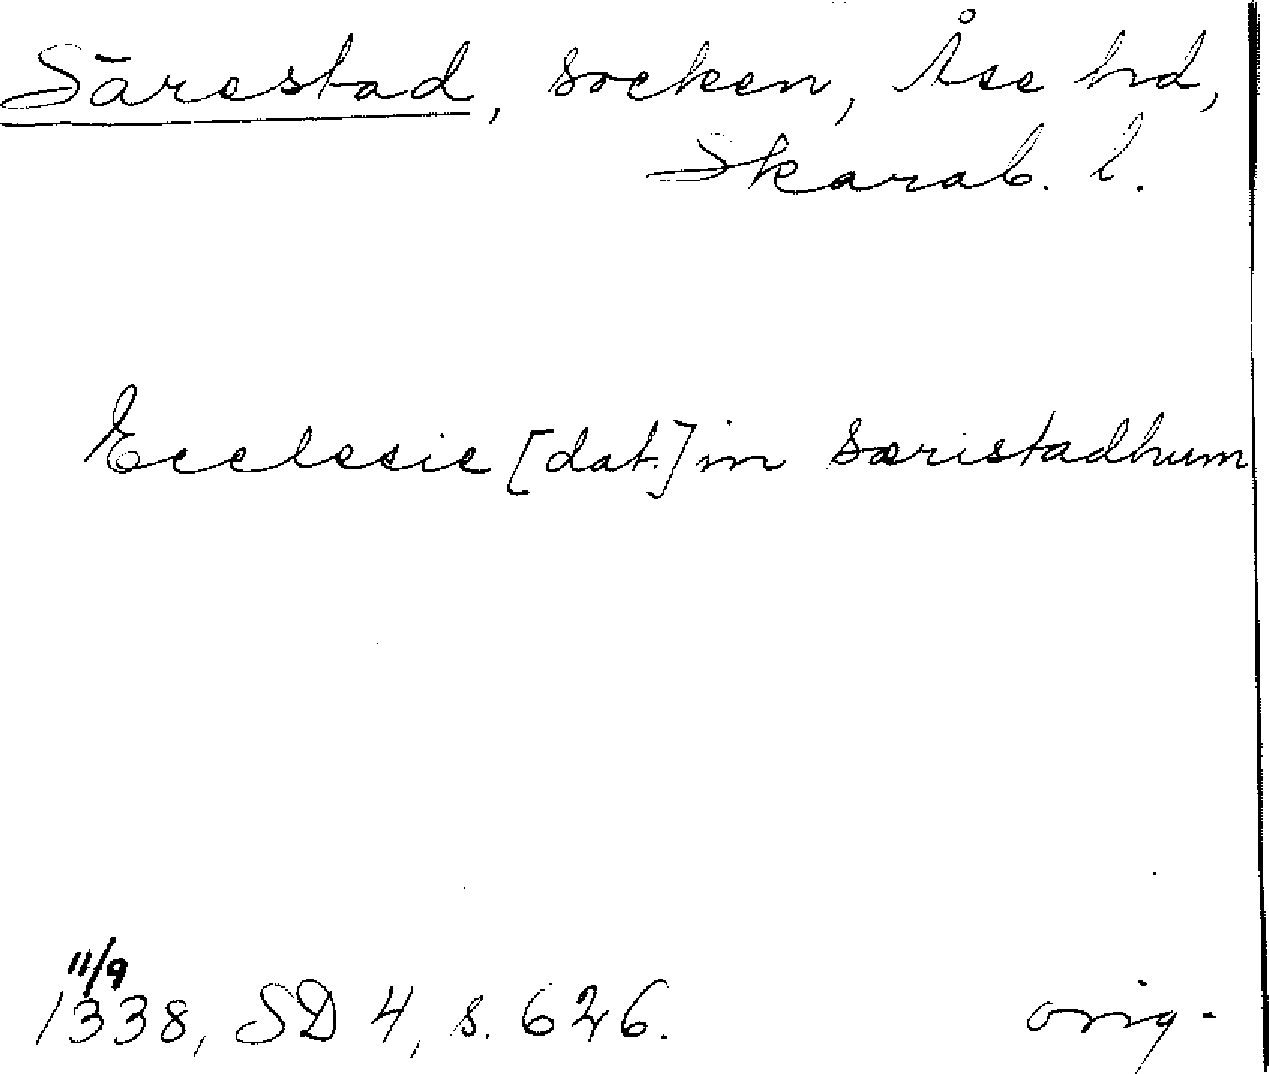 Särestad, socken, Åse hd,
Skarab. l.
Ecclesie [dat.] in særistadhum
11/9
1338, SD 4, s. 626.
orig.